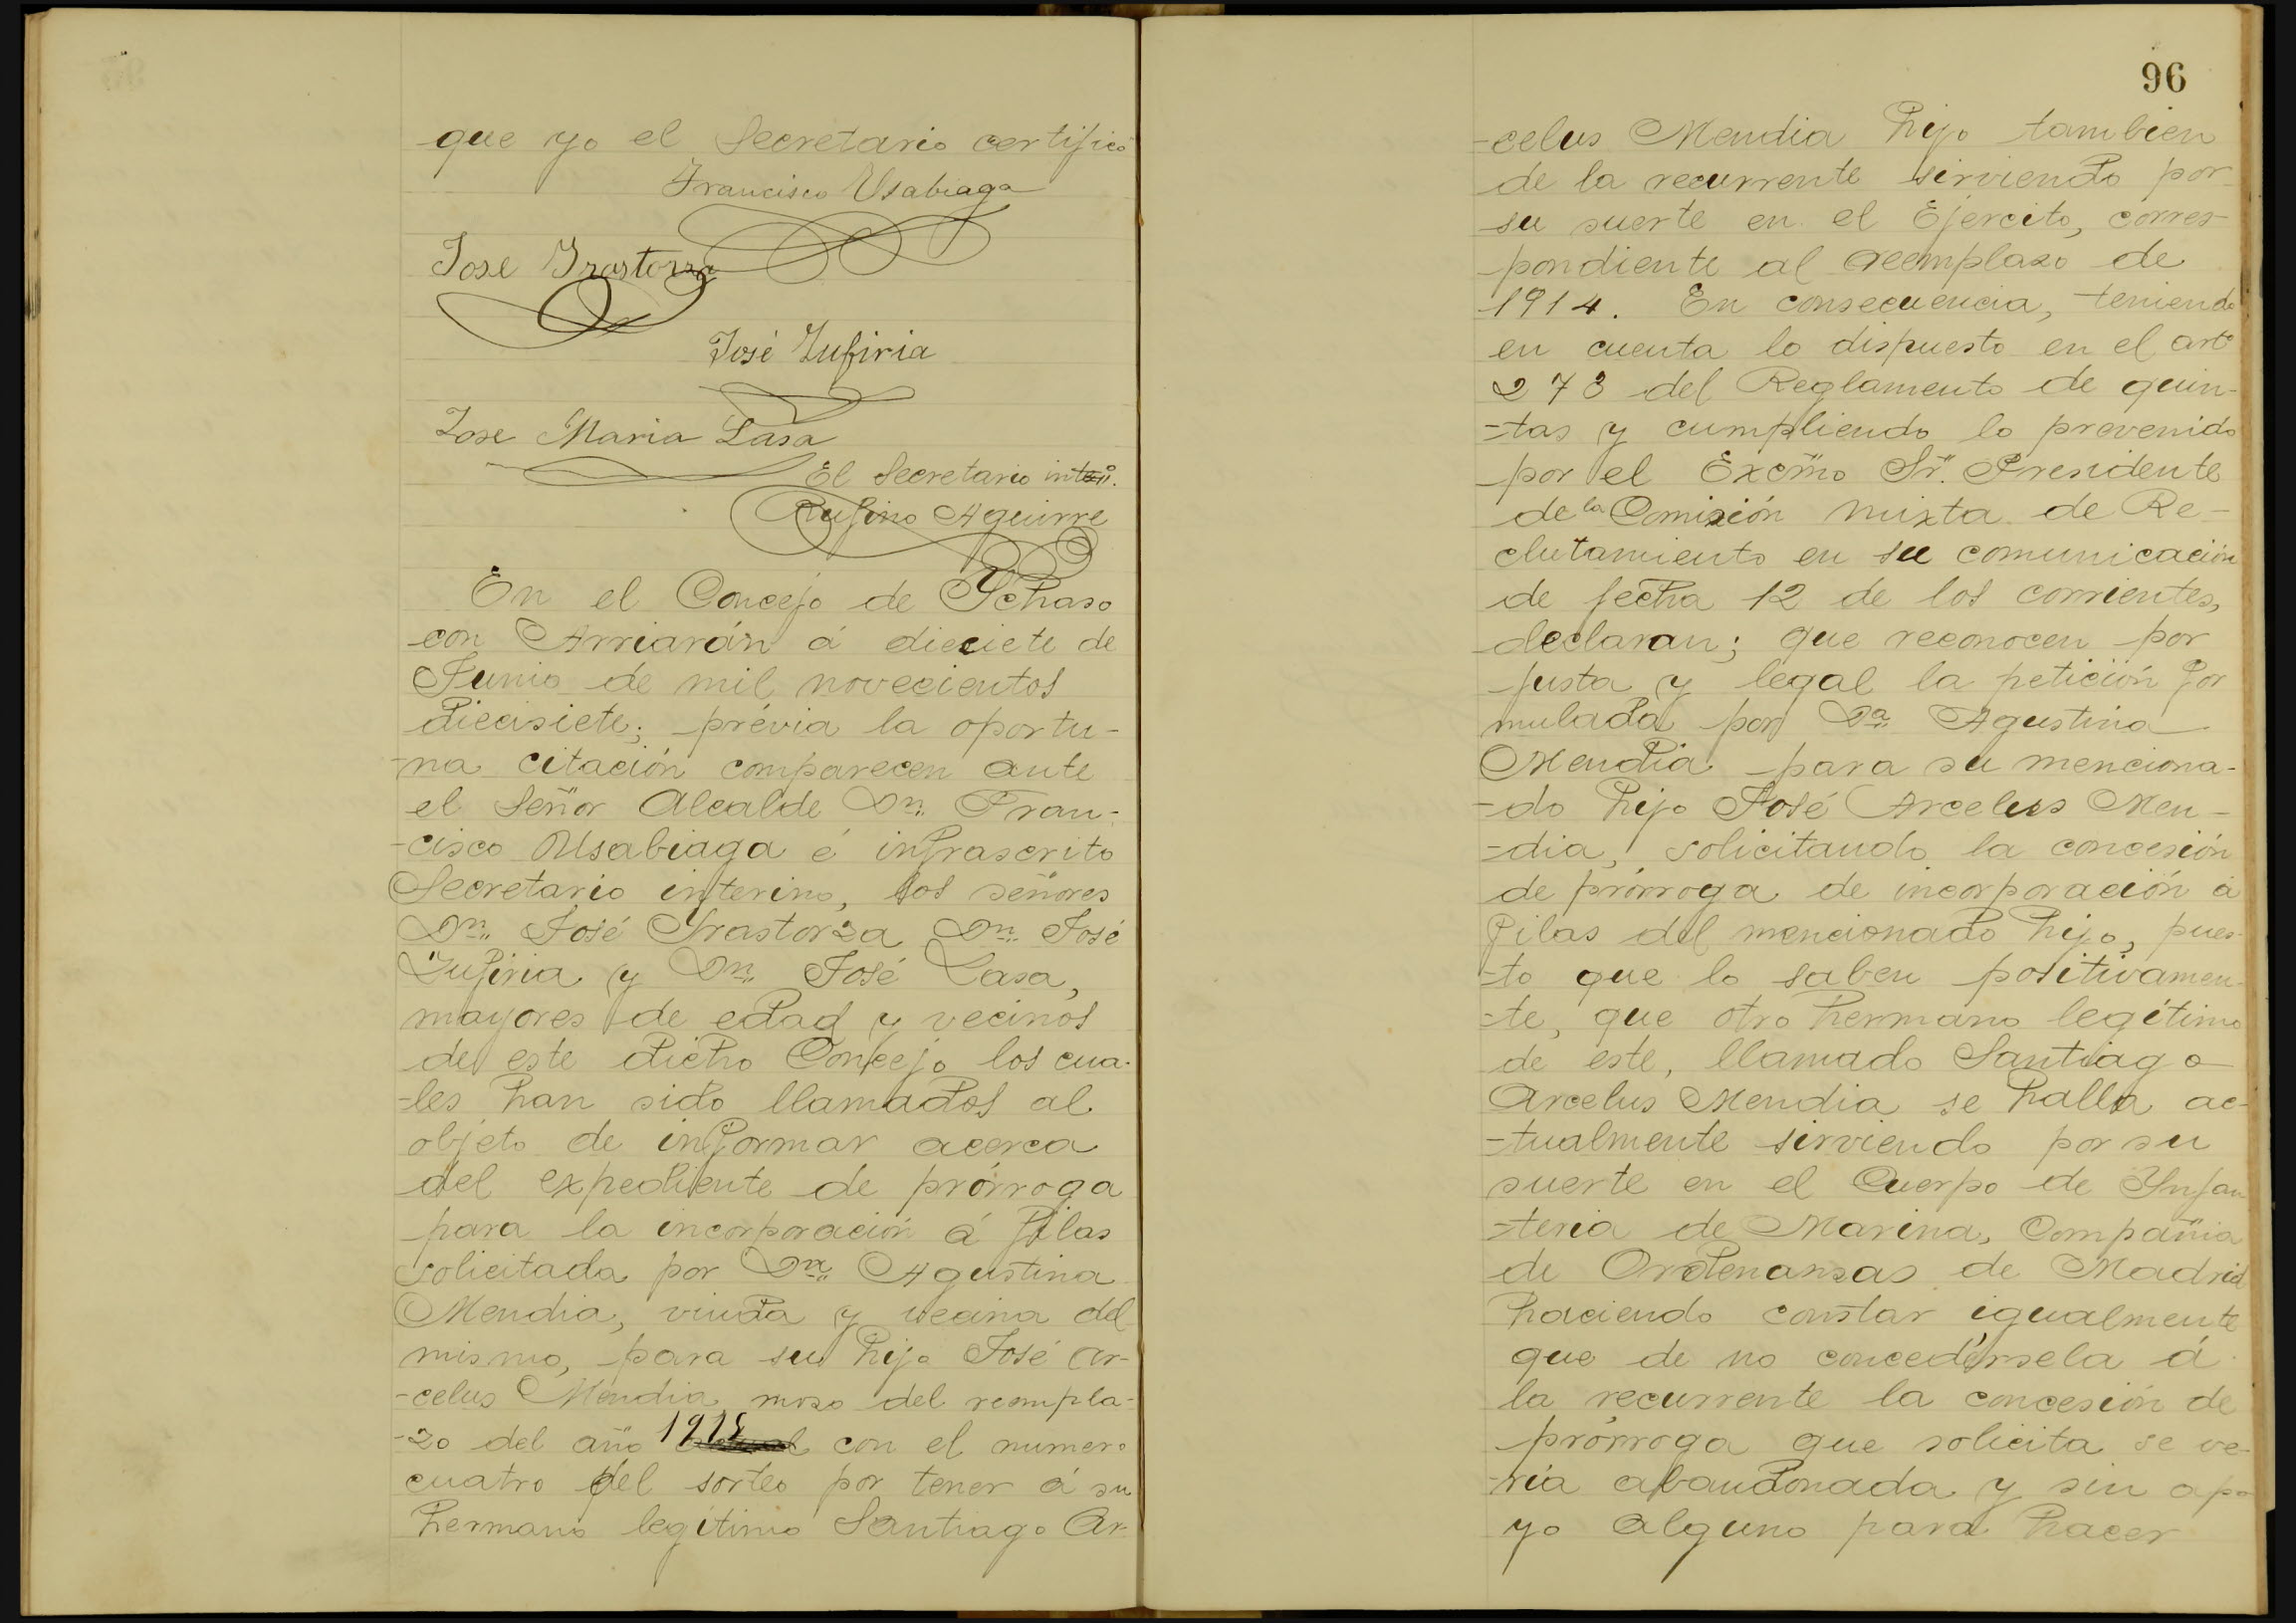 que yo el Secretario certifico
Francisco Usabiaga
Jose Yrastorza
José Zufiria
Jose Maria Lasa
El Secretario
Rufino Aguirre
En el Concejo de Ychaso
con Arriarán á dieciete de
Junio de mil novecientos
diecisiete; prévia la oportu-
-na citación comparecen ante
el Señor Alcalde Dn. Fran-
-cisco Usabiaga é infrascrito
Secretario interino, los señores
Dn. José Yrastorza Dn. José
Zufiria y Dn. José Lasa,
mayores de edad y vecinos
de este dicho Concejo los cua-
-les han sido llamados al
objeto de informar acerca
del expediente de prórroga
para la incorporación á filas
solicitada por Dña. Agustina
Mendia, viuda y vecina del
mismo, para su hijo José Ar-
-celus Mendia mozo del reempla-
-zo del año 1915 con el numero
cuatro del sorteo por tener á su
hermano legítimo Santiago Ar-
96
-celus Mendia hijo tambien
de la recurrente sirviendo por
su suerte en el Ejercito, corres-
pondiente al reemplazo de
1914. En consecuencia, teniendo
en cuenta lo dispuesto en el artº
273 del Reglamento de quin-
-tas y cumpliendo lo prevenido
por el Excmo Sr. Presidente
de la Comisión mixta de Re-
clutamiento en su comunicación
de fecha 12 de los corrientes,
declaran; que reconocen por
justa y legal la petición for
mulada por Dª Agustina
Mendia para su menciona-
-do hijo José Arcelus Men-
-dia, solicitando la concesión
de prórroga de incorporación á
filas del mencionado hijo, pues-
-to que lo saben positivamen-
-te, que otro hermano legítimo
de este, llamado Santiago
Arcelus Mendia se halla ac-
-tualmente sirviendo por su
suerte en el Cuerpo de Ynfan
-teria de Marina, Compañia
de Ordenanzas de Madrid
haciendo constar igualmente
que de no concedérsela á
la recurrente la concesión de
prórroga que solicita se ve-
-ria abandonada y sin apo
yo alguno para hacer